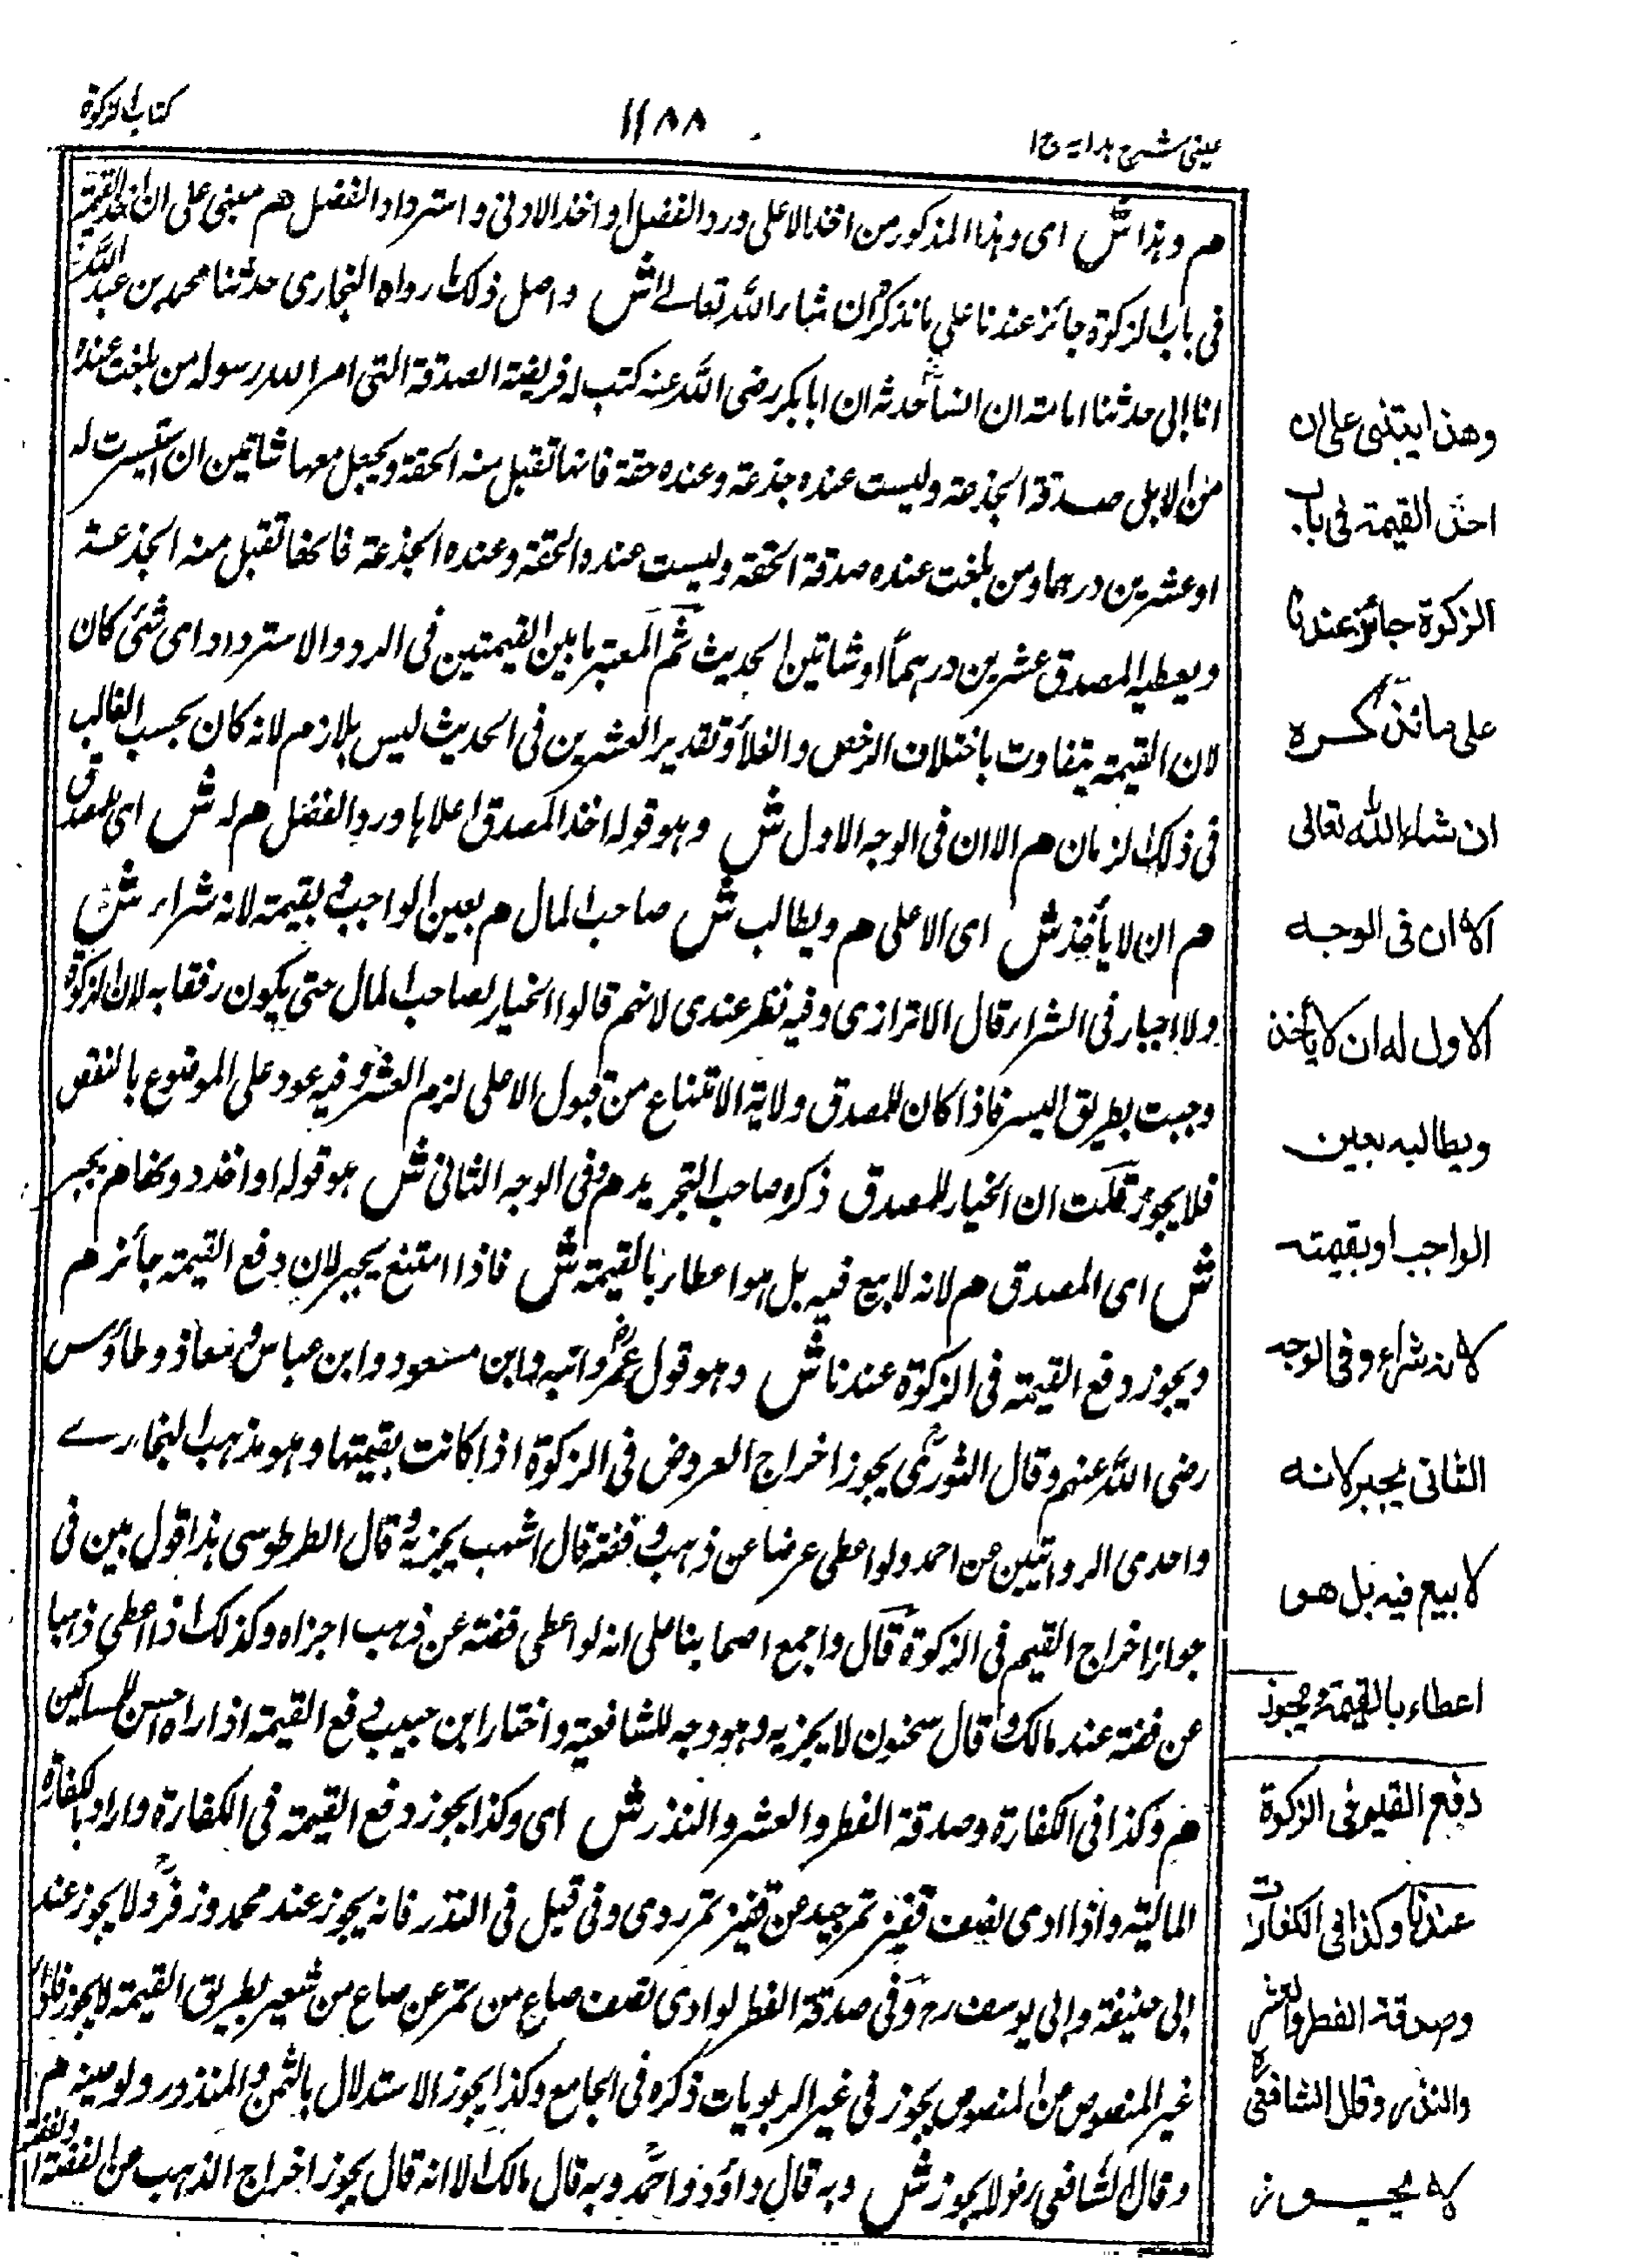 عینی شرح ہدایہ ج ا
۱۱۸۸
کتاب الزکوة
م وہذا ش ای وہذا المذکور من اخذ الاعلی ورد الفضل واخذ الادنی واسترداد الفضل م مبنی علی ان اخذ القیمة
فی باب الزکوة جائز عندنا علی ما نذکره ان شاء اللہ تعالے ش واصل ذلک ما رواہ البخاری حدثنا محمد بن عبداللہ
انا ابی حدثنا ثمامة ان انسا حدثہ ان ابابکر رضی اللہ عنہ کتب لہ فریضة الصدقة التی امر اللہ رسولہ من بلغت عندہ
من الابل صدقة الجذعة ولیست عندہ جذعة وعندہ حقة فانہا تقبل منہ الحقة ویجعل معہا شاتین ان استیسرت لہ
او عشرین درہما ومن بلغت عندہ صدقة الحقة ولیست عندہ الحقة وعندہ الجذعة فانھا تقبل منہ الجذعة
ویعطیہ المصدق عشرین درہما او شاتین الحدیث ثم المعتبر ما بین القیمتین فی الرد والاسترداد ای شئ کان
لان القیمة یتفاوت باختلاف الرخص والغلاء وتقدیر العشرین فی الحدیث لیس بلازم لانہ کان بحسب الغالب
فی ذلک الزمان م الا ان فی الوجہ الاول ش وہو قولہ اخذ المصدق اعلاہا ورد الفضل م لہ ش ای للمصدق
م ان لا یأخذ ش ای الاعلی م ویطالب ش صاحب المال م بعین الواجب او بقیمتہ لانہ شراء ش
ولا اجبار فی الشراء قال الاترازی وفیہ نظر عندی لانہم قالوا الخیار لصاحب المال حتی یکون رفقا بہ لان الزکوة
وجبت بطریق الیسر فاذا کان للمصدق ولایة الامتناع من قبول الاعلی لزم العشر وفیہ عود علی الموضوع بالنقض
فلا یجوز قلت ان الخیار للمصدق ذکرہ صاحب التجرید م وفی الوجہ الثانی ش ہو قولہ او اخذ دونھا م یجبر
ش ای المصدق م لانہ لا بیع فیہ بل ہو اعطاء بالقیمة ش فاذا امتنع یجبر لان دفع القیمة جائز م
ویجوز دفع القیمة فی الزکوة عندنا ش وہو قول عمر وابنہ وابن مسعود وابن عباس ومعاذ وطاؤس
رضی اللہ عنہم وقال الثوری یجوز اخراج العروض فی الزکوة اذا کانت بقیمتہا وہو مذہب البخارے
واحدی الروایتین عن احمد ولو اعطی عرضا عن ذہب وفضة قال اشہب یجزیہ وقال الطرطوسی ہذا قول بین فی
جواز اخراج القیم فی الزکوة قال واجمع اصحابنا علی انہ لو اعطی فضة عن ذہب اجزاہ وکذلک اذا اعطی ذہبا
عن فضة عند مالک وقال سحنون لا یجزیہ وہو وجہ للشافعیة واختار ابن حبیب دفع القیمة اذا راہ احسن للمساکین
م وکذا فی الکفارة وصدقة الفطر والعشر والنذر ش ای وکذا یجوز دفع القیمة فی الکفارة واراد بالکفارة
المالیة واذا ادی نصف قفیز تمر جید عن قفیز تمر ردی وفی قیل فی النذر فانہ یجوز عند محمد وزفر ولا یجوز عند
ابی حنیفة وابی یوسف رح وفی صدقة الفطر لو ادی نصف صاع من تمر عن صاع من شعیر بطریق القیمة لا یجوز
غیر المنصوص من المنصوص یجوز فی غیر الربویات ذکرہ فی الجامع وکذا یجوز الاستدلال بالثمن والمنذور ولو بعینہ م
وقال الشافعی رض لا یجوز ش وبہ قال داؤد واحمد وبہ قال مالک الا انہ قال یجوز اخراج الذہب من الفضة والفضة
وهذا یبتنی علی ان
اخذ القیمة فی باب
الزکوة جائز عندنا
علی ما نذکره
ان شاء الله تعالی
الا ان فی الوجه
الاول له ان لا یأخذ
ویطالبه بعین
الواجب او بقیمته
لانه شراء وفی الوجه
الثانی یجبر لانه
لا بیع فیه بل هو
اعطاء بالقیمة ویجوز
دفع القیم فی الزکوة
عندنا وکذا فی الکفارات
وصدقة الفطر والعشر
والنذر وقال الشافعی
لا یجوز